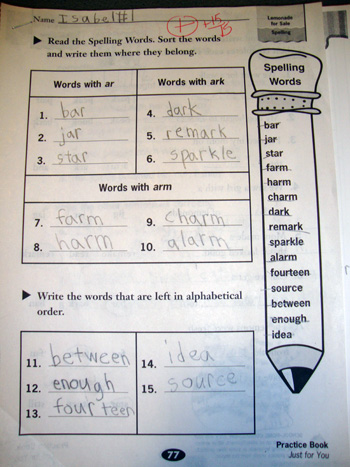 Name Isabel #1
+15
15
Lemonade
for Sale
Spelling
▶ Read the Spelling Words. Sort the words
and write them where they belong.
Words with ar
1. bar
2. jar
3. star
Words with ark
4. dark
5. remark
6. sparkle
Words with arm
7. farm
8. harm
9. charm
10. alarm
▶ Write the words that are left in alphabetical
order.
11. between
12. enough
13. fourteen
14. idea
15. source
Spelling
Words
bar
jar
star
farm
harm
charm
dark
remark
sparkle
alarm
fourteen
source
between
enough
idea
77
Practice Book
Just for You